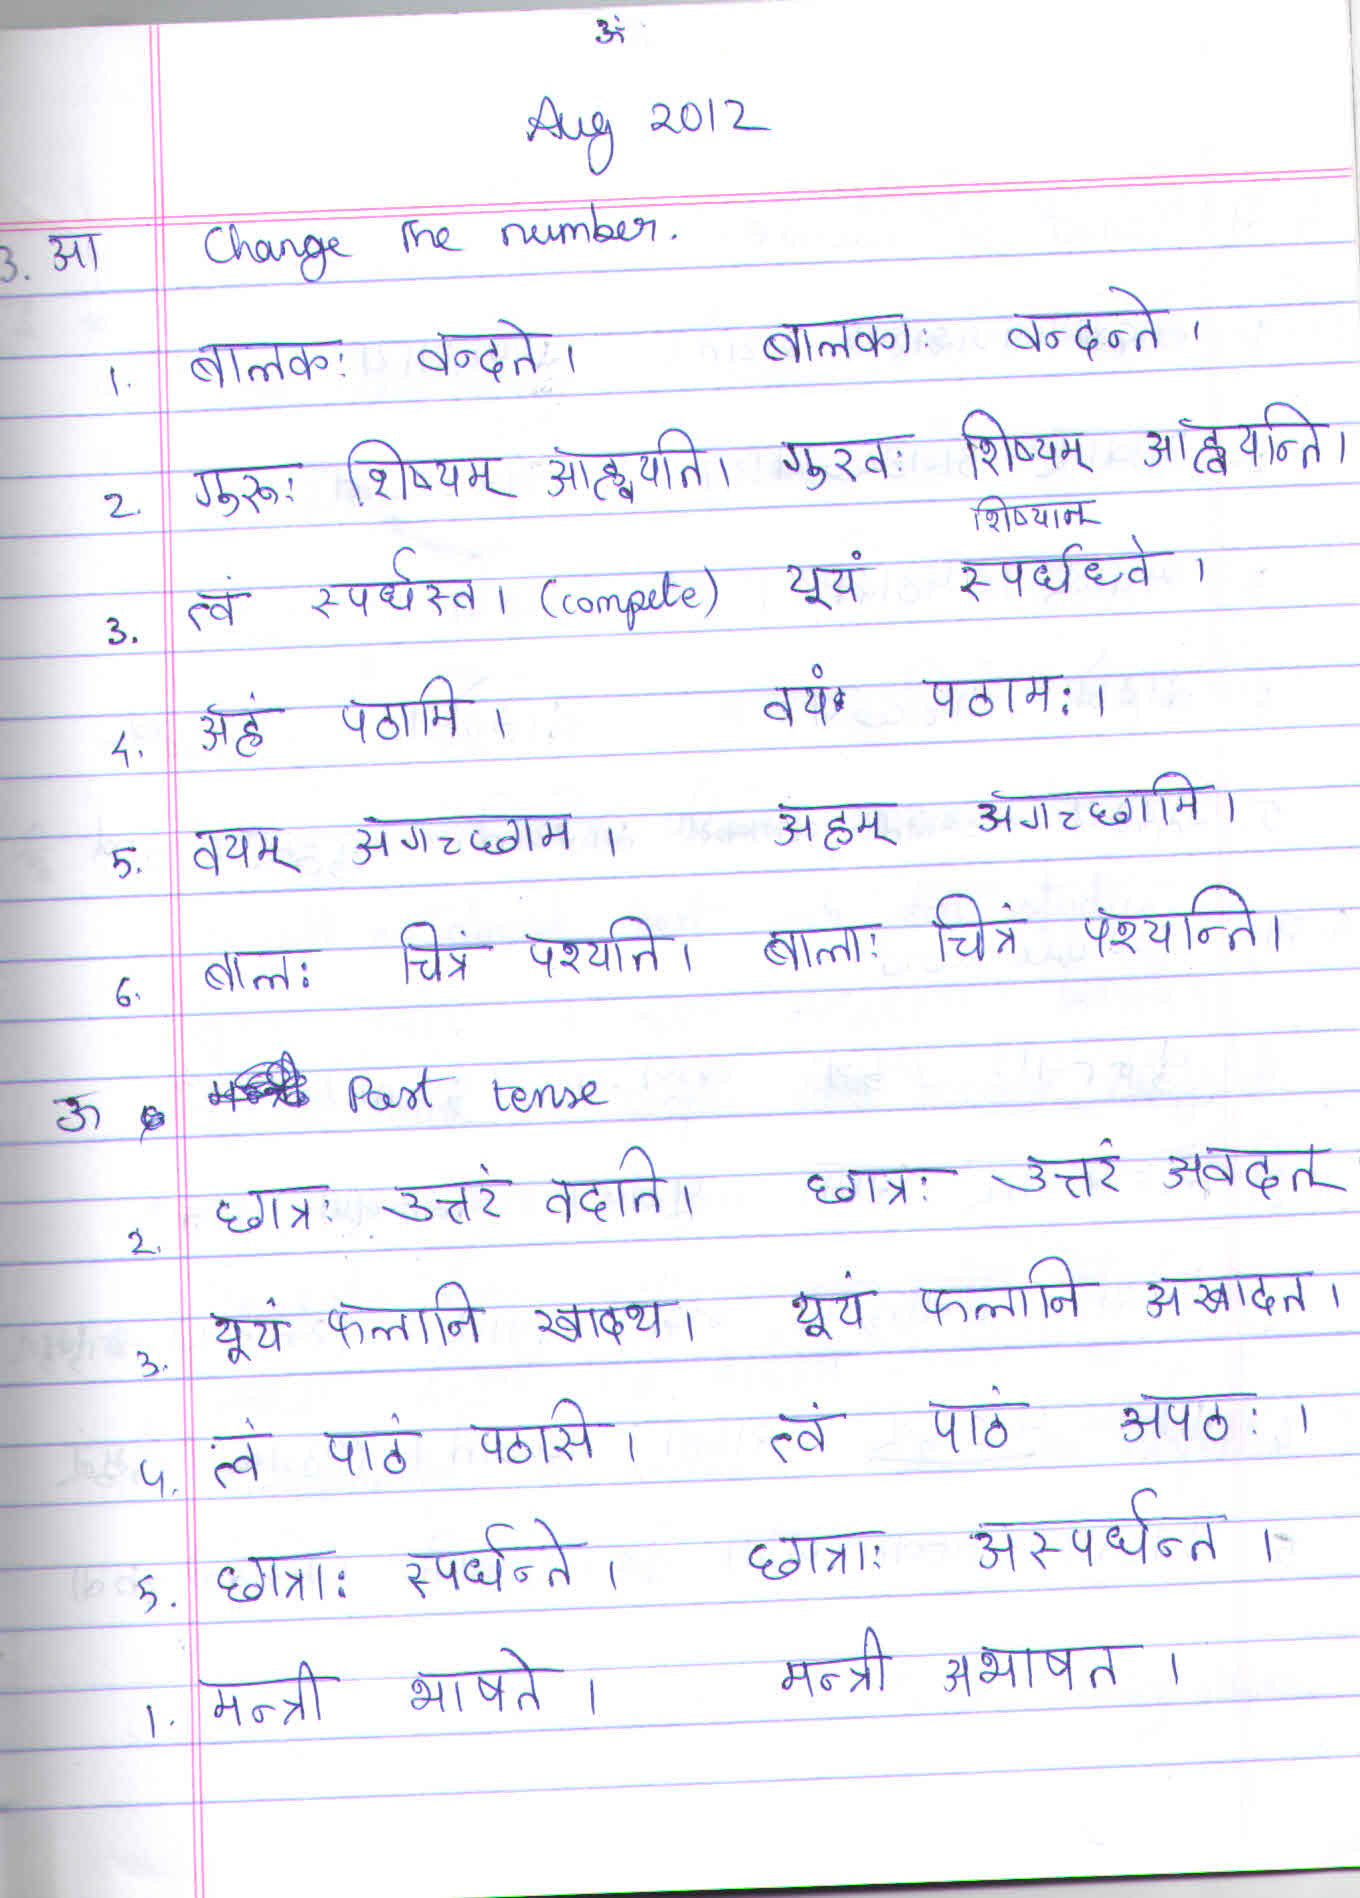 ॐ
Aug 2012
3. आ Change the number.
1. बालकः वन्दते । बालकाः वन्दन्ते ।
2. गुरूः शिष्यम् आह्वयति । गुरवः शिष्यम् आह्वयन्ति ।
शिष्यान्
3. त्वं स्पर्धस्त । (compete) यूयं स्पर्धध्वे ।
4. अहं पठामि । वयं पठामः ।
5. वयम् अगच्छाम । अहम् अगच्छामि ।
6. बालः चित्रं पश्यति । बालाः चित्रं पश्यन्ति ।
ऊ Past tense
2. छात्रः उत्तरं वदति । छात्रः उत्तरं अवदत्
3. यूयं फलानि खादथ । यूयं फलानि अखादत ।
४. त्वं पाठं पठसि । त्वं पाठं अपठः ।
5. छात्राः स्पर्धन्ते । छात्राः अस्पर्धन्त ।
1. मन्त्री भाषते । मन्त्री अभाषत ।